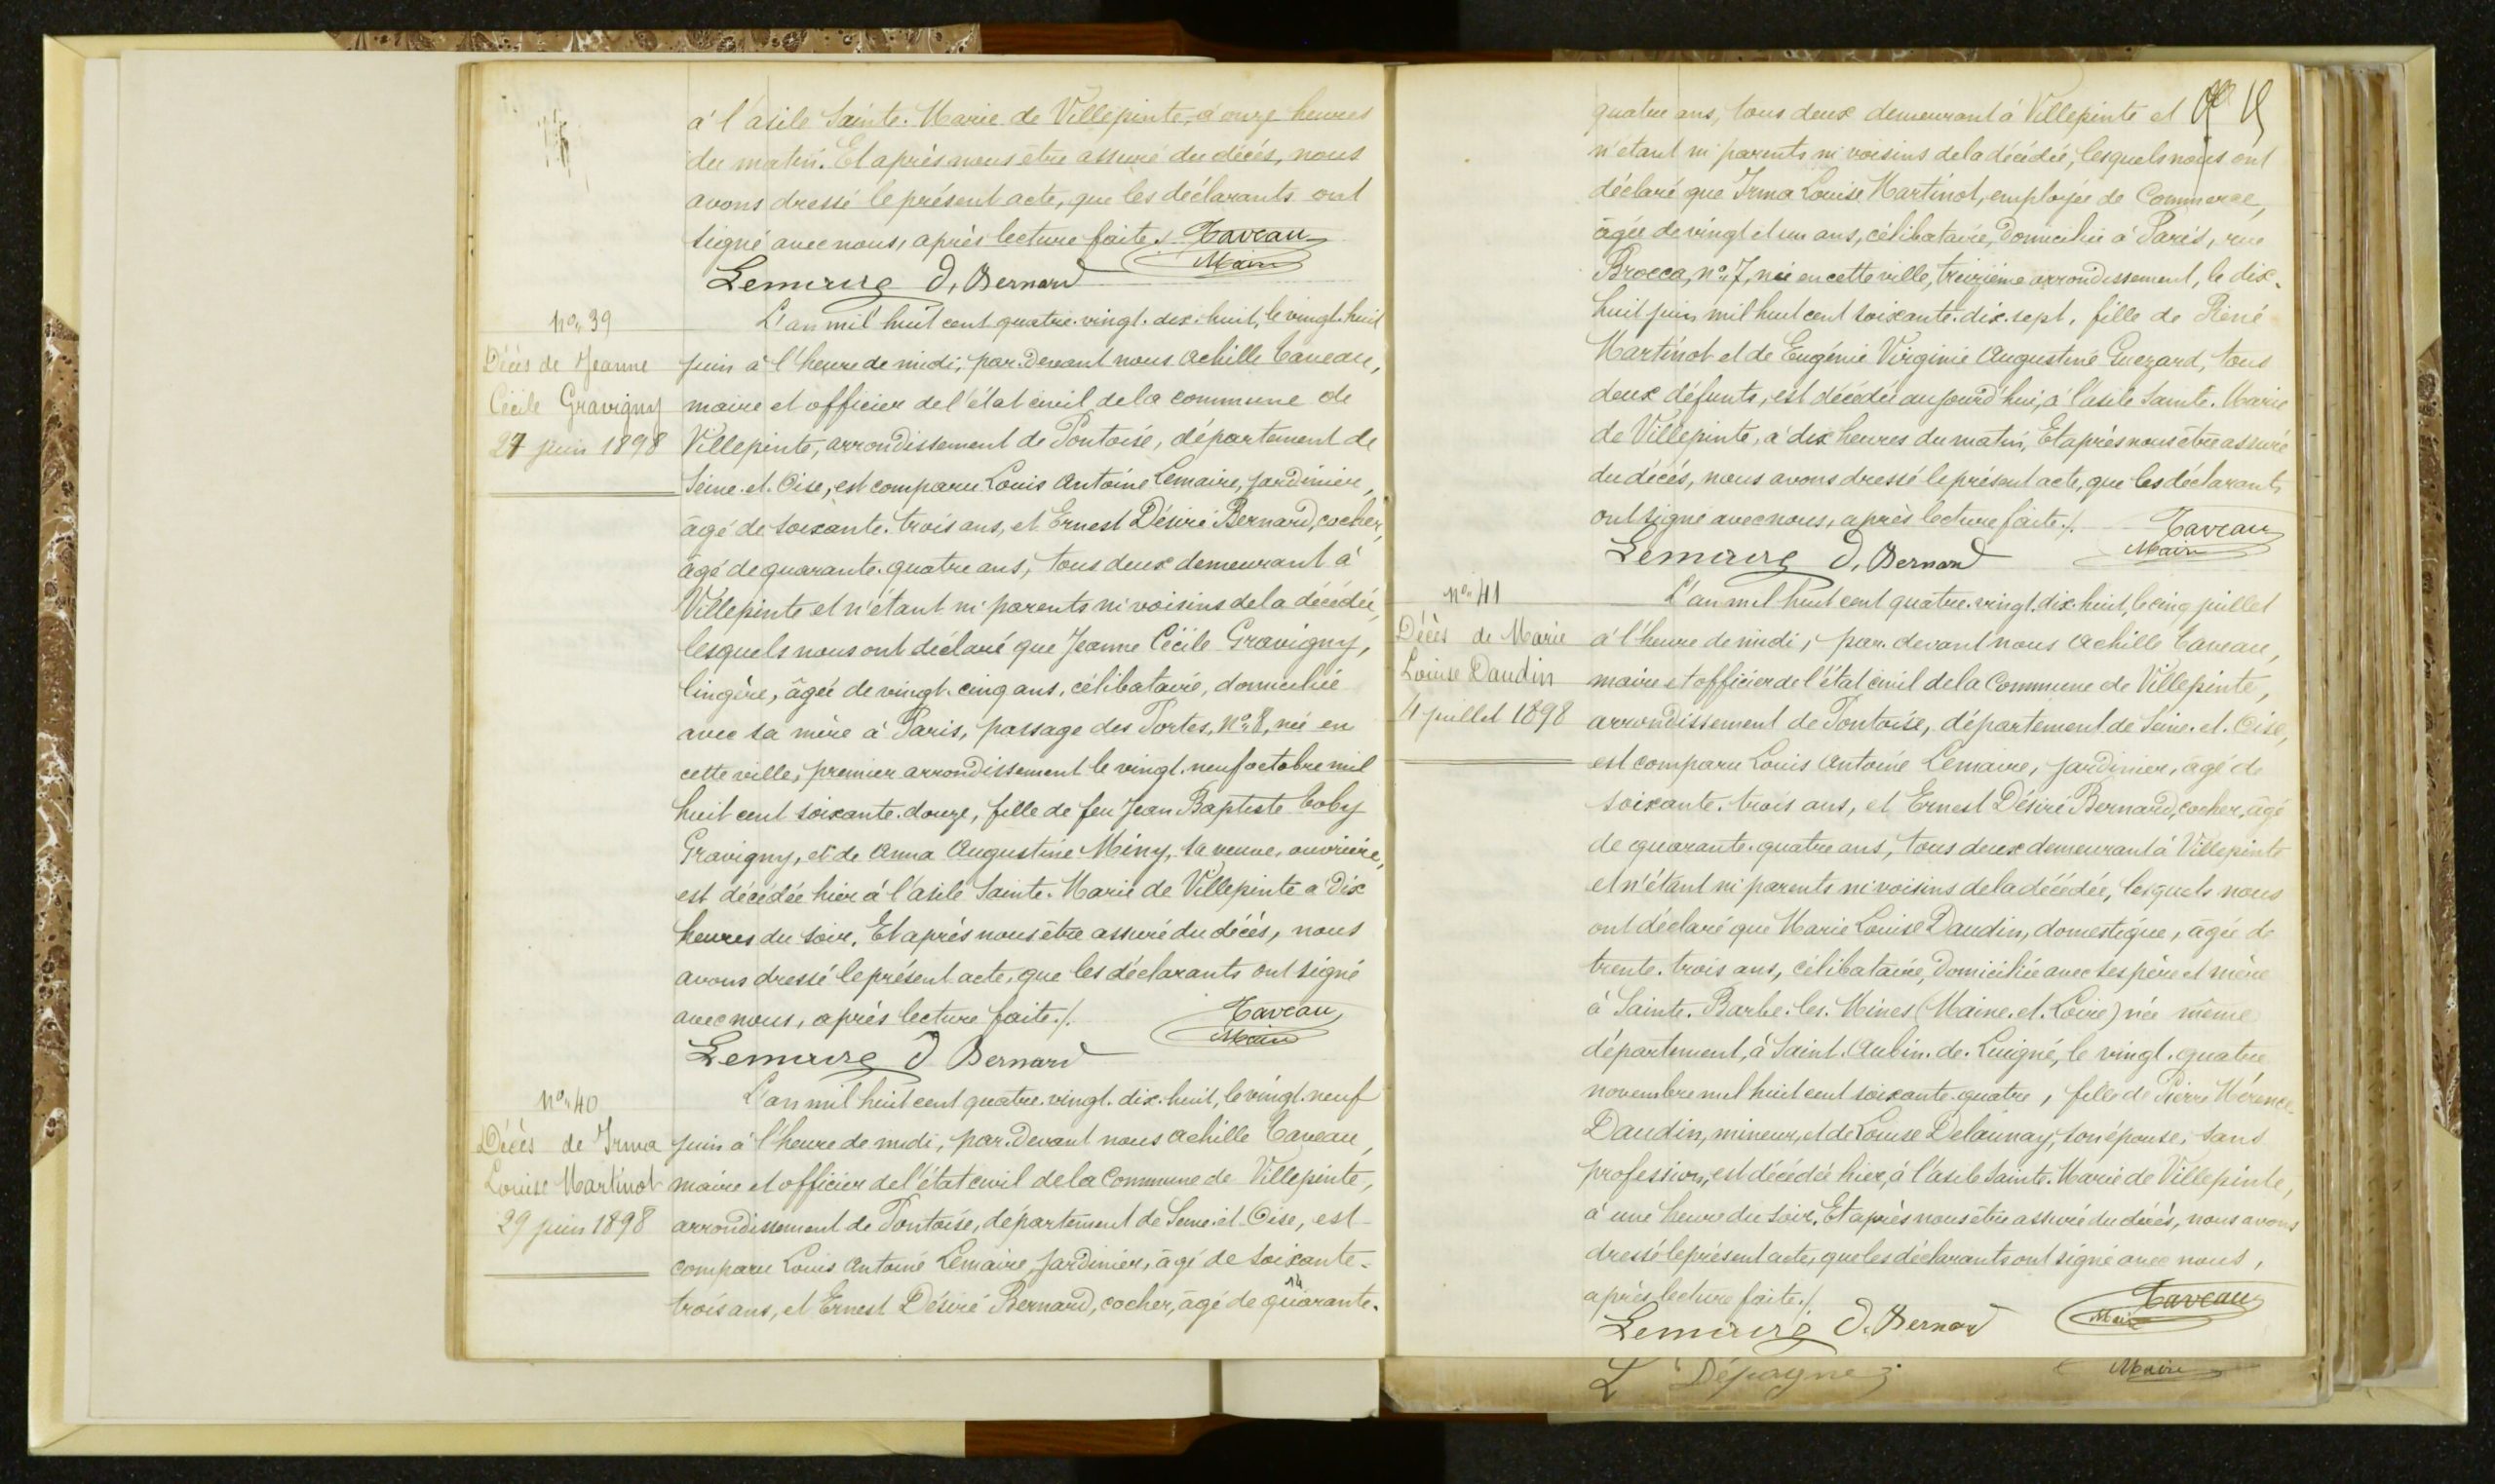 à l'asile Sainte. Marie de Villepinte, à onze heures
du matin. Et après nous être assuré du décés, nous
avons dressé le présent acte, que les déclarants ont
signé avec nous, après lecture faite./. Taveau
Maire
Lemaire D. Bernard
No. 39
Décès de Jeanne
Cécile Gravigny
27 juin 1898
L'an mil huit cent quatre. vingt. dix. huit, le vingt. huit
juin à l'heure de midi, par. devant nous Achille Taveau,
maire et officier de l'état civil de la commune de
Villepinte, arrondissement de Pontoise, département de
Seine. et. Oise, est comparu Louis Antoine Lemaire, jardinier,
âgé de soixante. trois ans, et Ernest Désiré Bernard, cocher,
âgé de quarante. quatre ans, tous deux demeurant à
Villepinte et n'étant ni parents ni voisins de la décédée,
lesquels nous ont déclaré que Jeanne Cécile Gravigny,
lingère, âgée de vingt. cinq ans, célibataire, domiciliée
avec sa mère à Paris, passage des Portes, No. 8, née en
cette ville, premier arrondissement le vingt. neuf octobre mil
huit cent soixante. douze, fille de feu Jean Baptiste Toby
Gravigny, et de Anna Augustine Miny, sa veuve, ouvrière,
est décédée hier à l'asile Sainte. Marie de Villepinte à dix
heures du soir. Et après nous être assuré du décés, nous
avons dressé le présent acte, que les déclarants ont signé
avec nous, après lecture faite./. Taveau
Maire
Lemaire D Bernard
No. 40
Décès de Irma
Louise Martinot
29 juin 1898
L'an mil huit cent quatre. vingt. dix. huit, le vingt. neuf
juin à l'heure de midi, par. devant nous Achille Taveau,
maire et officier de l'état civil de la Commune de Villepinte,
arrondissement de Pontoise, département de Seine. et. Oise, est
comparu Louis Antoine Lemaire, jardinier, âgé de soixante.
trois ans, et Ernest Désiré Bernard, cocher, âgé de quarante.
14
quatre ans, tous deux demeurant à Villepinte et
n'étant ni parents ni voisins de la décédée, lesquels nous ont
déclaré que Irma Louise Martinot, employée de Commerce,
âgée de vingt et un ans, célibataire, domiciliée à Paris, rue
Brocca, no. 7, née en cette ville, treizième arrondissement, le dix.
huit juin mil huit cent soixante. dix. sept, fille de René
Martinot et de Eugénie Virginie Augustine Guezard, tous
deux défunts, est décédée aujourd'hui, à l'asile Sainte. Marie
de Villepinte, à dix heures du matin. Et après nous être assuré
du décés, nous avons dressé le présent acte, que les déclarants
ont signé avec nous, après lecture faite./. Taveau
Maire
Lemaire D. Bernard
No. 41
Décès de Marie
Louise Daudin
4 juillet 1898
L'an mil huit cent quatre. vingt. dix. huit, le cinq juillet
à l'heure de midi, par. devant nous Achille Taveau,
maire et officier de l'état civil de la Commune de Villepinte,
arrondissement de Pontoise, département de Seine. et. Oise,
est comparu Louis Antoine Lemaire, jardinier, âgé de
soixante. trois ans, et Ernest Désiré Bernard, cocher, âgé
de quarante. quatre ans, tous deux demeurant à Villepinte
et n'étant ni parents ni voisins de la décédée, lesquels nous
ont déclaré que Marie Louise Daudin, domestique, âgée de
trente. trois ans, célibataire, domiciliée avec ses père et mère
à Sainte. Barbe. les. Mines (Maine. et. Loire) née même
département, à Saint. Aubin. de. Luigné, le vingt. quatre
novembre mil huit cent soixante. quatre, fille de Pierre Mérence
Daudin, mineur, et de Louise Delaunay, son épouse, sans
profession, est décédée hier, à l'asile Sainte. Marie de Villepinte,
à une heure du soir. Et après nous être assuré du décés, nous avons
dressé le présent acte, que les déclarants ont signé avec nous,
après lecture faite./. Taveau
Maire
Lemaire D. Bernard
L Dépagne
Maire